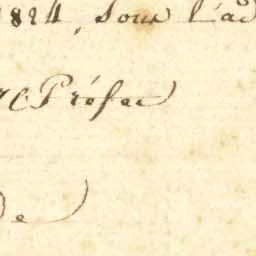 1824, Sous l'ad
Préfec
de